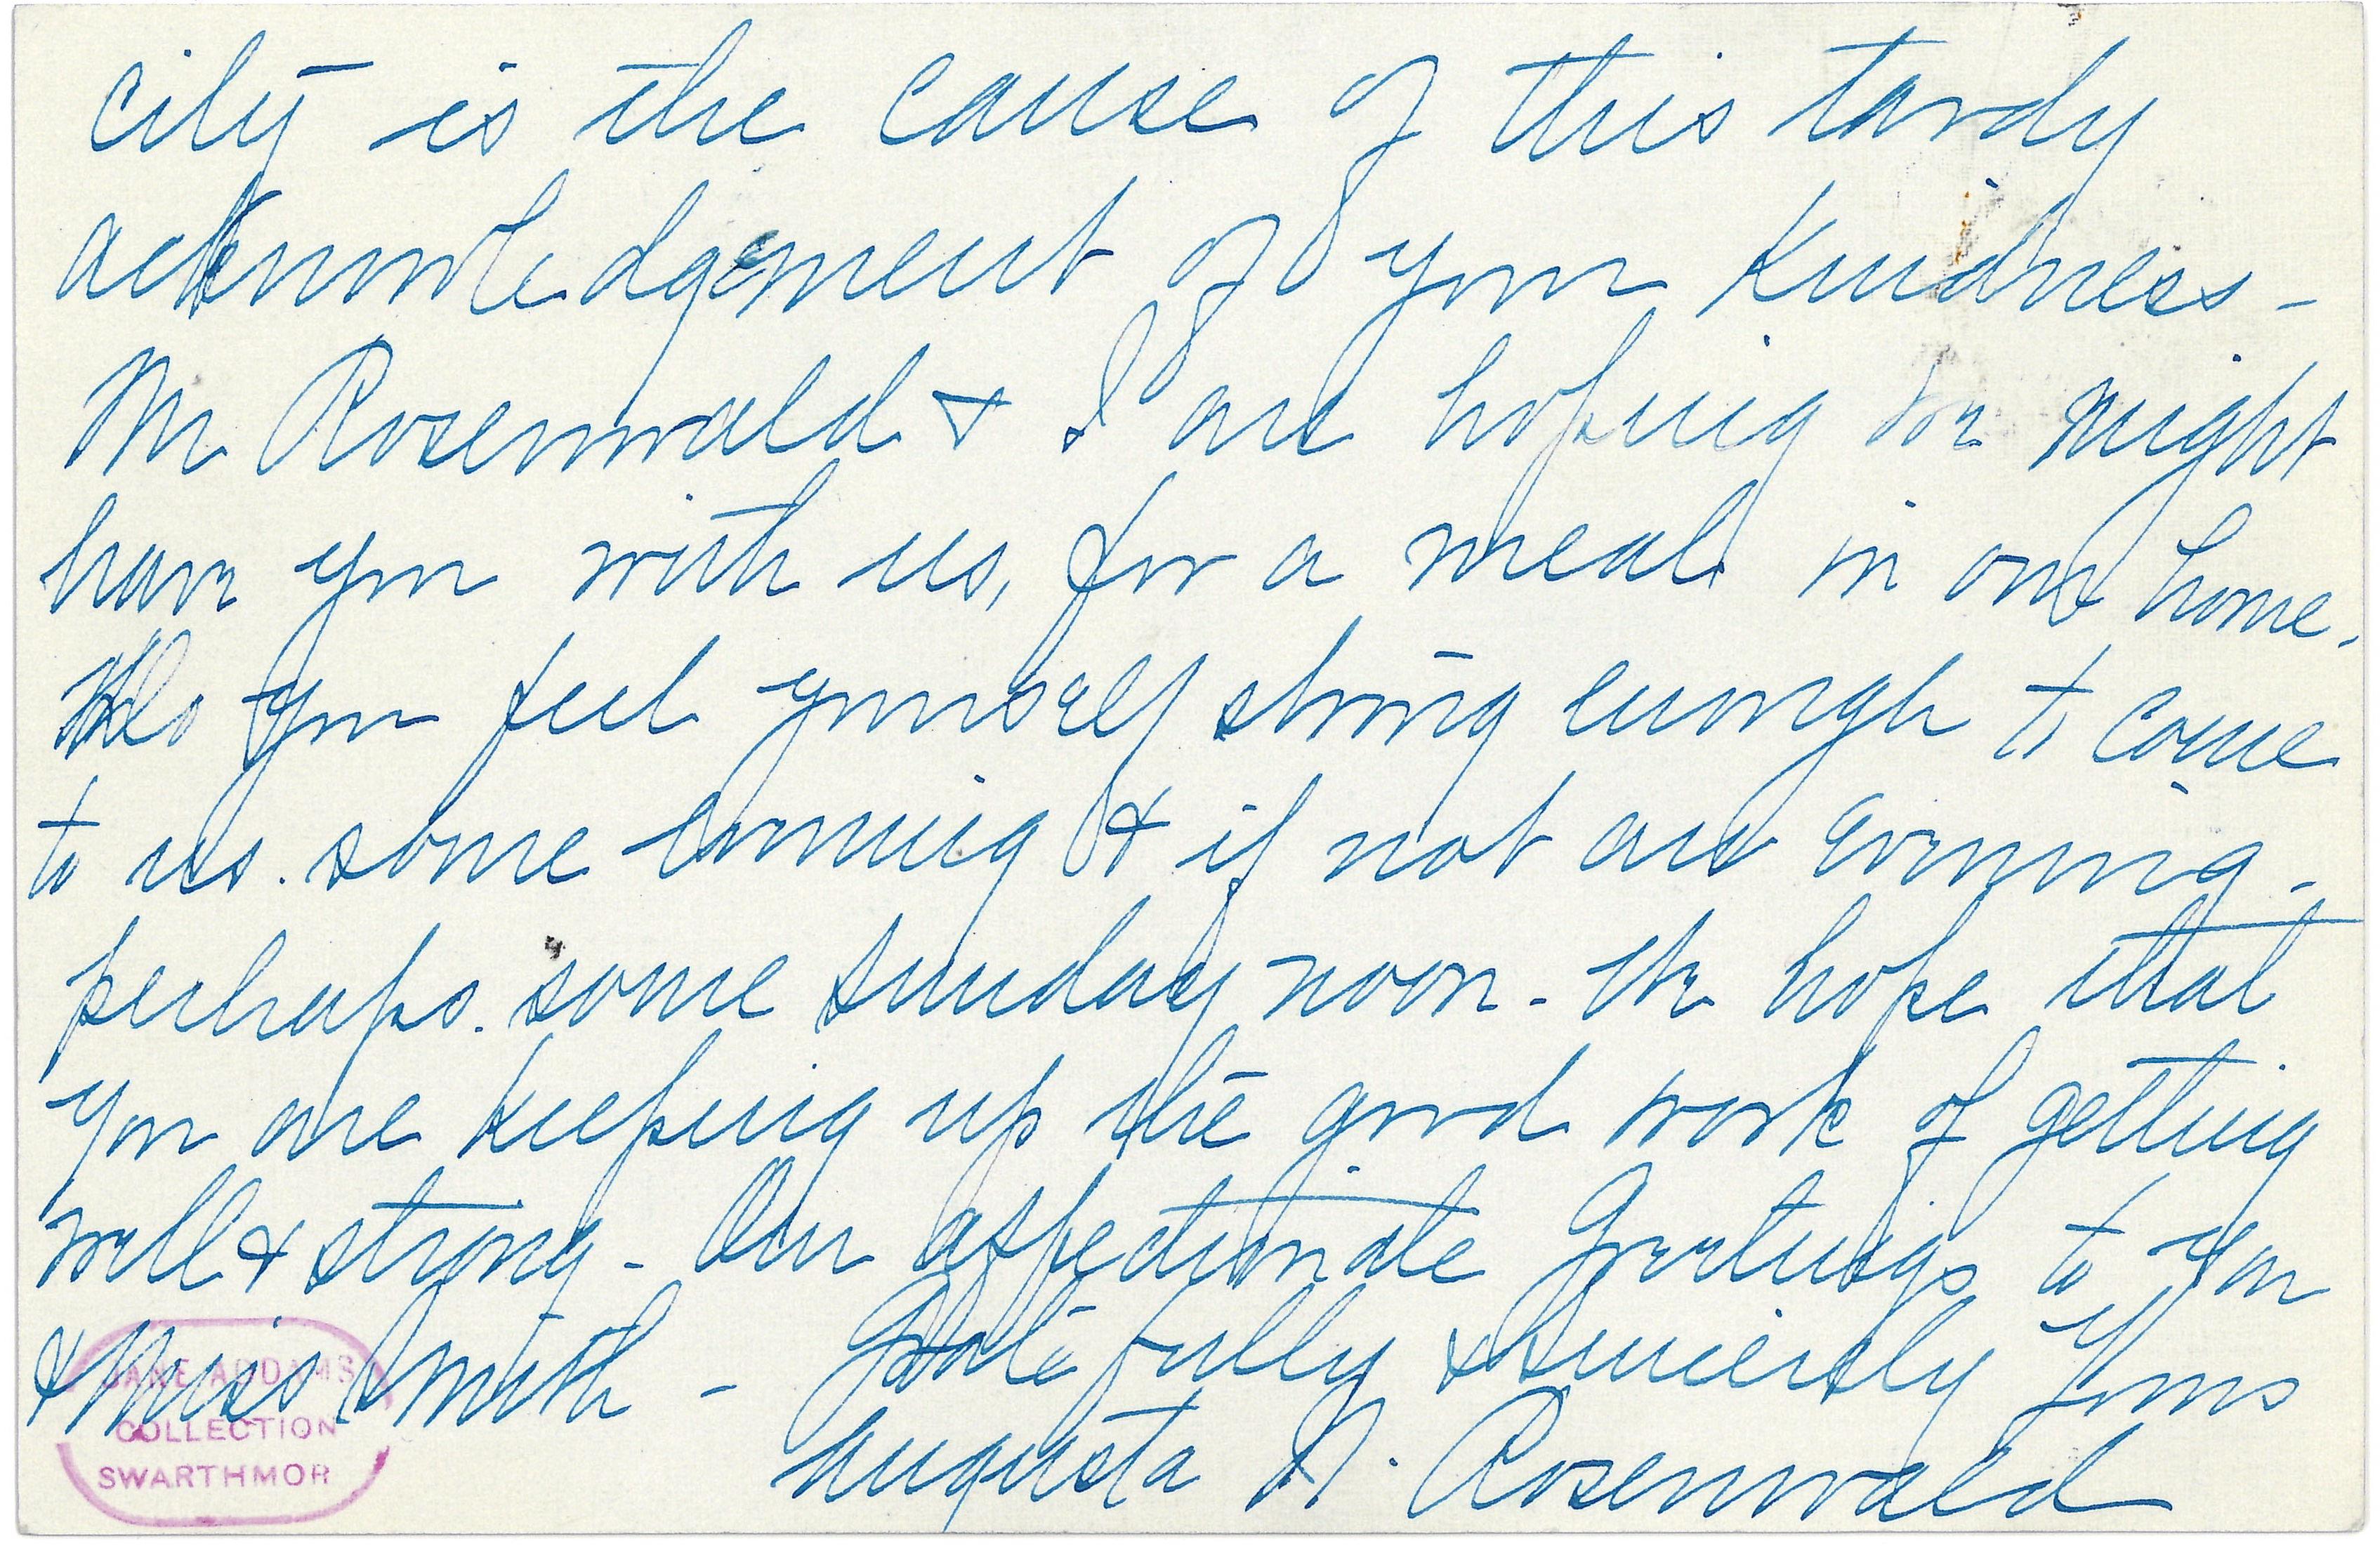 city is the cause of this tardy
acknowledgement of your kindness -
Mr Rosenwald & I are hoping we might
have you with us, for a meal in our home.
Do you feel yourself strong enough to come
to us. some evening & if not an evening -
perhaps. some Sunday noon - We hope that
you are keeping up the good work of getting
well & strong - Our affectionate greetings to you
& Miss Smith - Gratefully & Sincerely Yours
Augusta N. Rosenwald
JANE ADDAMS
COLLECTION
SWARTHMOR